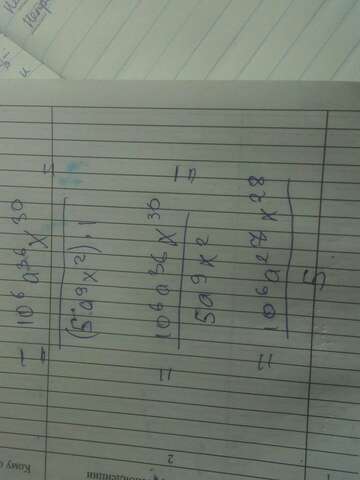 = 10⁶a³⁶x³⁰ =
(5¹a⁹x²)·1
= 10⁶a³⁶x³⁰ =
5a⁹x²
= 10⁶a²⁷x²⁸
5
2
Кому